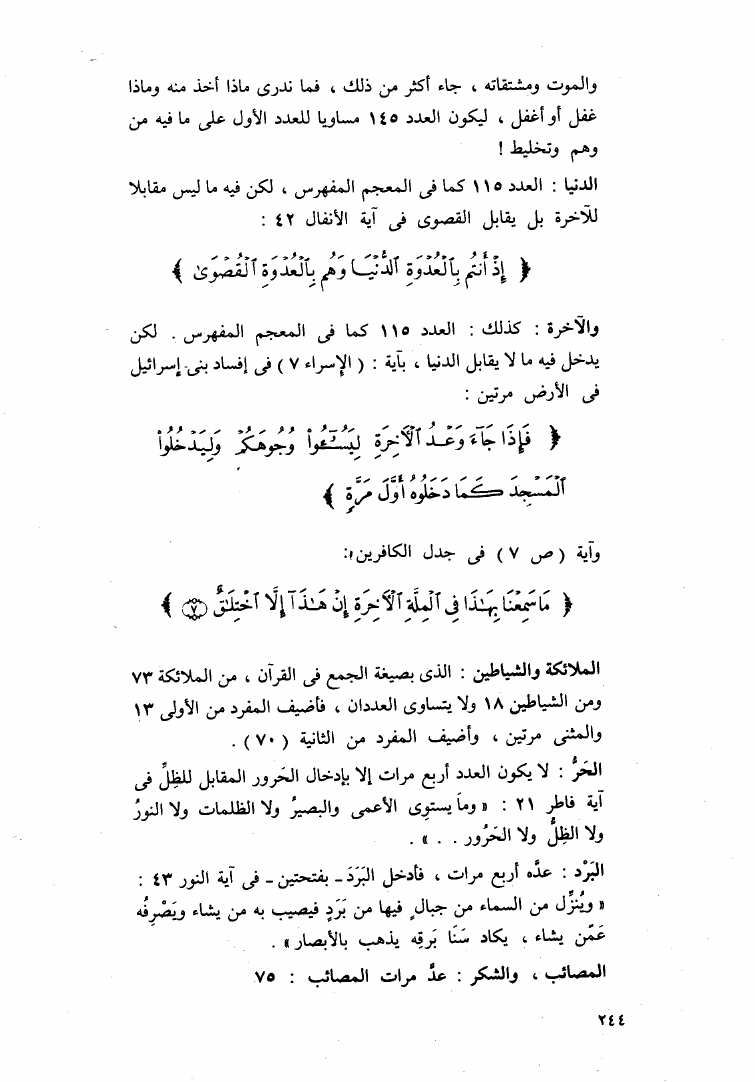 والموت ومشتقاته ، جاء أكثر من ذلك ، فما ندرى ماذا أخذ منه وماذا
غفل أو أغفل ، ليكون العدد ١٤٥ مساويا للعدد الأول على ما فيه من
وهم وتخليط !
الدنيا : العدد ١١٥ كما فى المعجم المفهرس ، لكن فيه ما ليس مقابلا
للآخرة بل يقابل القصوى فى آية الأنفال ٤٢ :
﴿ إِذْ أَنتُم بِٱلْعُدْوَةِ ٱلدُّنْيَا وَهُم بِٱلْعُدْوَةِ ٱلْقُصْوَىٰ ﴾
والآخرة : كذلك : العدد ١١٥ كما فى المعجم المفهرس . لكن
يدخل فيه ما لا يقابل الدنيا ، بآية : ( الإسراء ٧ ) فى إفساد بنى إسرائيل
فى الأرض مرتين :
﴿ فَإِذَا جَآءَ وَعْدُ ٱلْآخِرَةِ لِيَسُـۥٓـُٔوا۟ وُجُوهَكُمْ وَلِيَدْخُلُوا۟
ٱلْمَسْجِدَ كَمَا دَخَلُوهُ أَوَّلَ مَرَّةٍ ﴾
وآية ( ص ٧ ) فى جدل الكافرين :
﴿ مَا سَمِعْنَا بِهَٰذَا فِى ٱلْمِلَّةِ ٱلْآخِرَةِ إِنْ هَٰذَآ إِلَّا ٱخْتِلَٰقٌ ٧ ﴾
الملائكة والشياطين : الذى بصيغة الجمع فى القرآن ، من الملائكة ٧٣
ومن الشياطين ١٨ ولا يتساوى العددان ، فأضيف المفرد من الأولى ١٣
والمثنى مرتين ، وأضيف المفرد من الثانية ( ٧٠ ) .
الحَرُّ : لا يكون العدد أربع مرات إلا بإدخال الحَرور المقابل للظِلِّ فى
آية فاطر ٢١ : « وما يستوِى الأعمى والبصيرُ ولا الظلمات ولا النورُ
ولا الظِلُّ ولا الحَرُور . . » .
البَرْد : عدَّه أربع مرات ، فأدخل البَرَدَ ـ بفتحتين ـ فى آية النور ٤٣ :
« ويُنَزِّل من السماء من جبالٍ فيها من بَرَدٍ فيصيب به من يشاء ويَصْرِفُه
عَمَّن يشاء ، يكاد سَنَا بَرقِه يذهب بالأبصار » .
المصائب ، والشكر : عدَّ مرات المصائب : ٧٥
٢٤٤